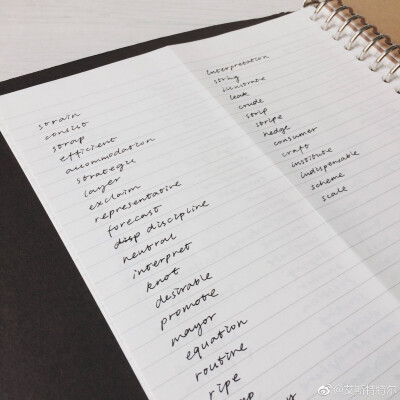 strain
consist
strap
efficient
accommodation
strategic
layer
exclaim
representative
forecast
disp discipline
neutral
interpret
knot
desirable
promote
mayor
equation
routine
ripe
interpretation
string
illustrate
leak
crude
strip
stripe
hedge
consumer
craft
institute
indispensable
scheme
scale
@艾斯特特尔